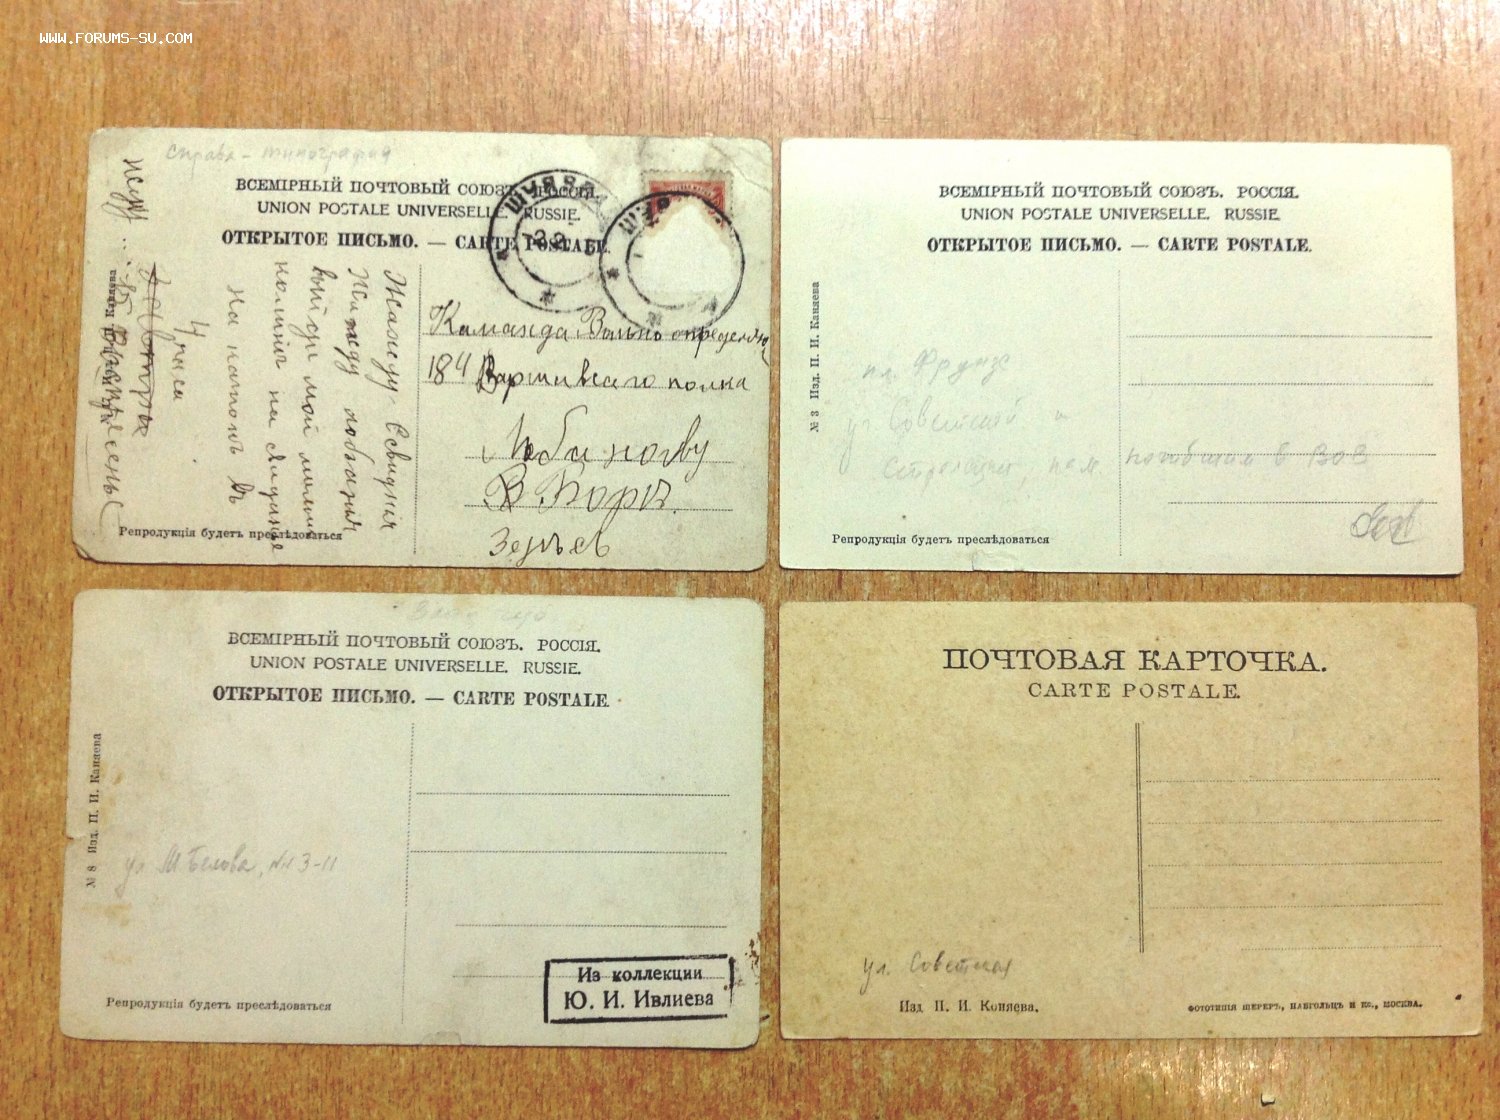 WWW.FORUMS-SU.COM
Справа - типография
ВСЕМІРНЫЙ ПОЧТОВЫЙ СОЮЗЪ. РОССІЯ.
UNION POSTALE UNIVERSELLE. RUSSIE.
ОТКРЫТОЕ ПИСЬМО. — CARTE POSTALE.
ШУЯ
ШУЯ
Изд. П. И. Каняева
Жажду свиданія
Жажду лобзанія
выйди мой милый
на катокъ въ
4 часа
Команда Вольноопредел
184 Варшавскаго полка
Лобанову
Репродукція будетъ преслѣдоваться
ВСЕМІРНЫЙ ПОЧТОВЫЙ СОЮЗЪ. РОССІЯ.
UNION POSTALE UNIVERSELLE. RUSSIE.
ОТКРЫТОЕ ПИСЬМО. — CARTE POSTALE.
№ 3 Изд. П. И. Каняева
пл. Фрунзе
уг. Советской и
пам. погибшим в ВОВ
Репродукція будетъ преслѣдоваться
ВСЕМІРНЫЙ ПОЧТОВЫЙ СОЮЗЪ. РОССІЯ.
UNION POSTALE UNIVERSELLE. RUSSIE.
ОТКРЫТОЕ ПИСЬМО. — CARTE POSTALE.
№ 8 Изд. П. И. Каняева
ул М Белова, 3-11
Из коллекции
Ю. И. Ивлиева
Репродукція будетъ преслѣдоваться
ПОЧТОВАЯ КАРТОЧКА.
CARTE POSTALE.
ул. Советская
Изд. П. И. Коняева.
ФОТОТИПІЯ ШЕРЕРЪ, НАБГОЛЬЦЪ И КО., МОСКВА.